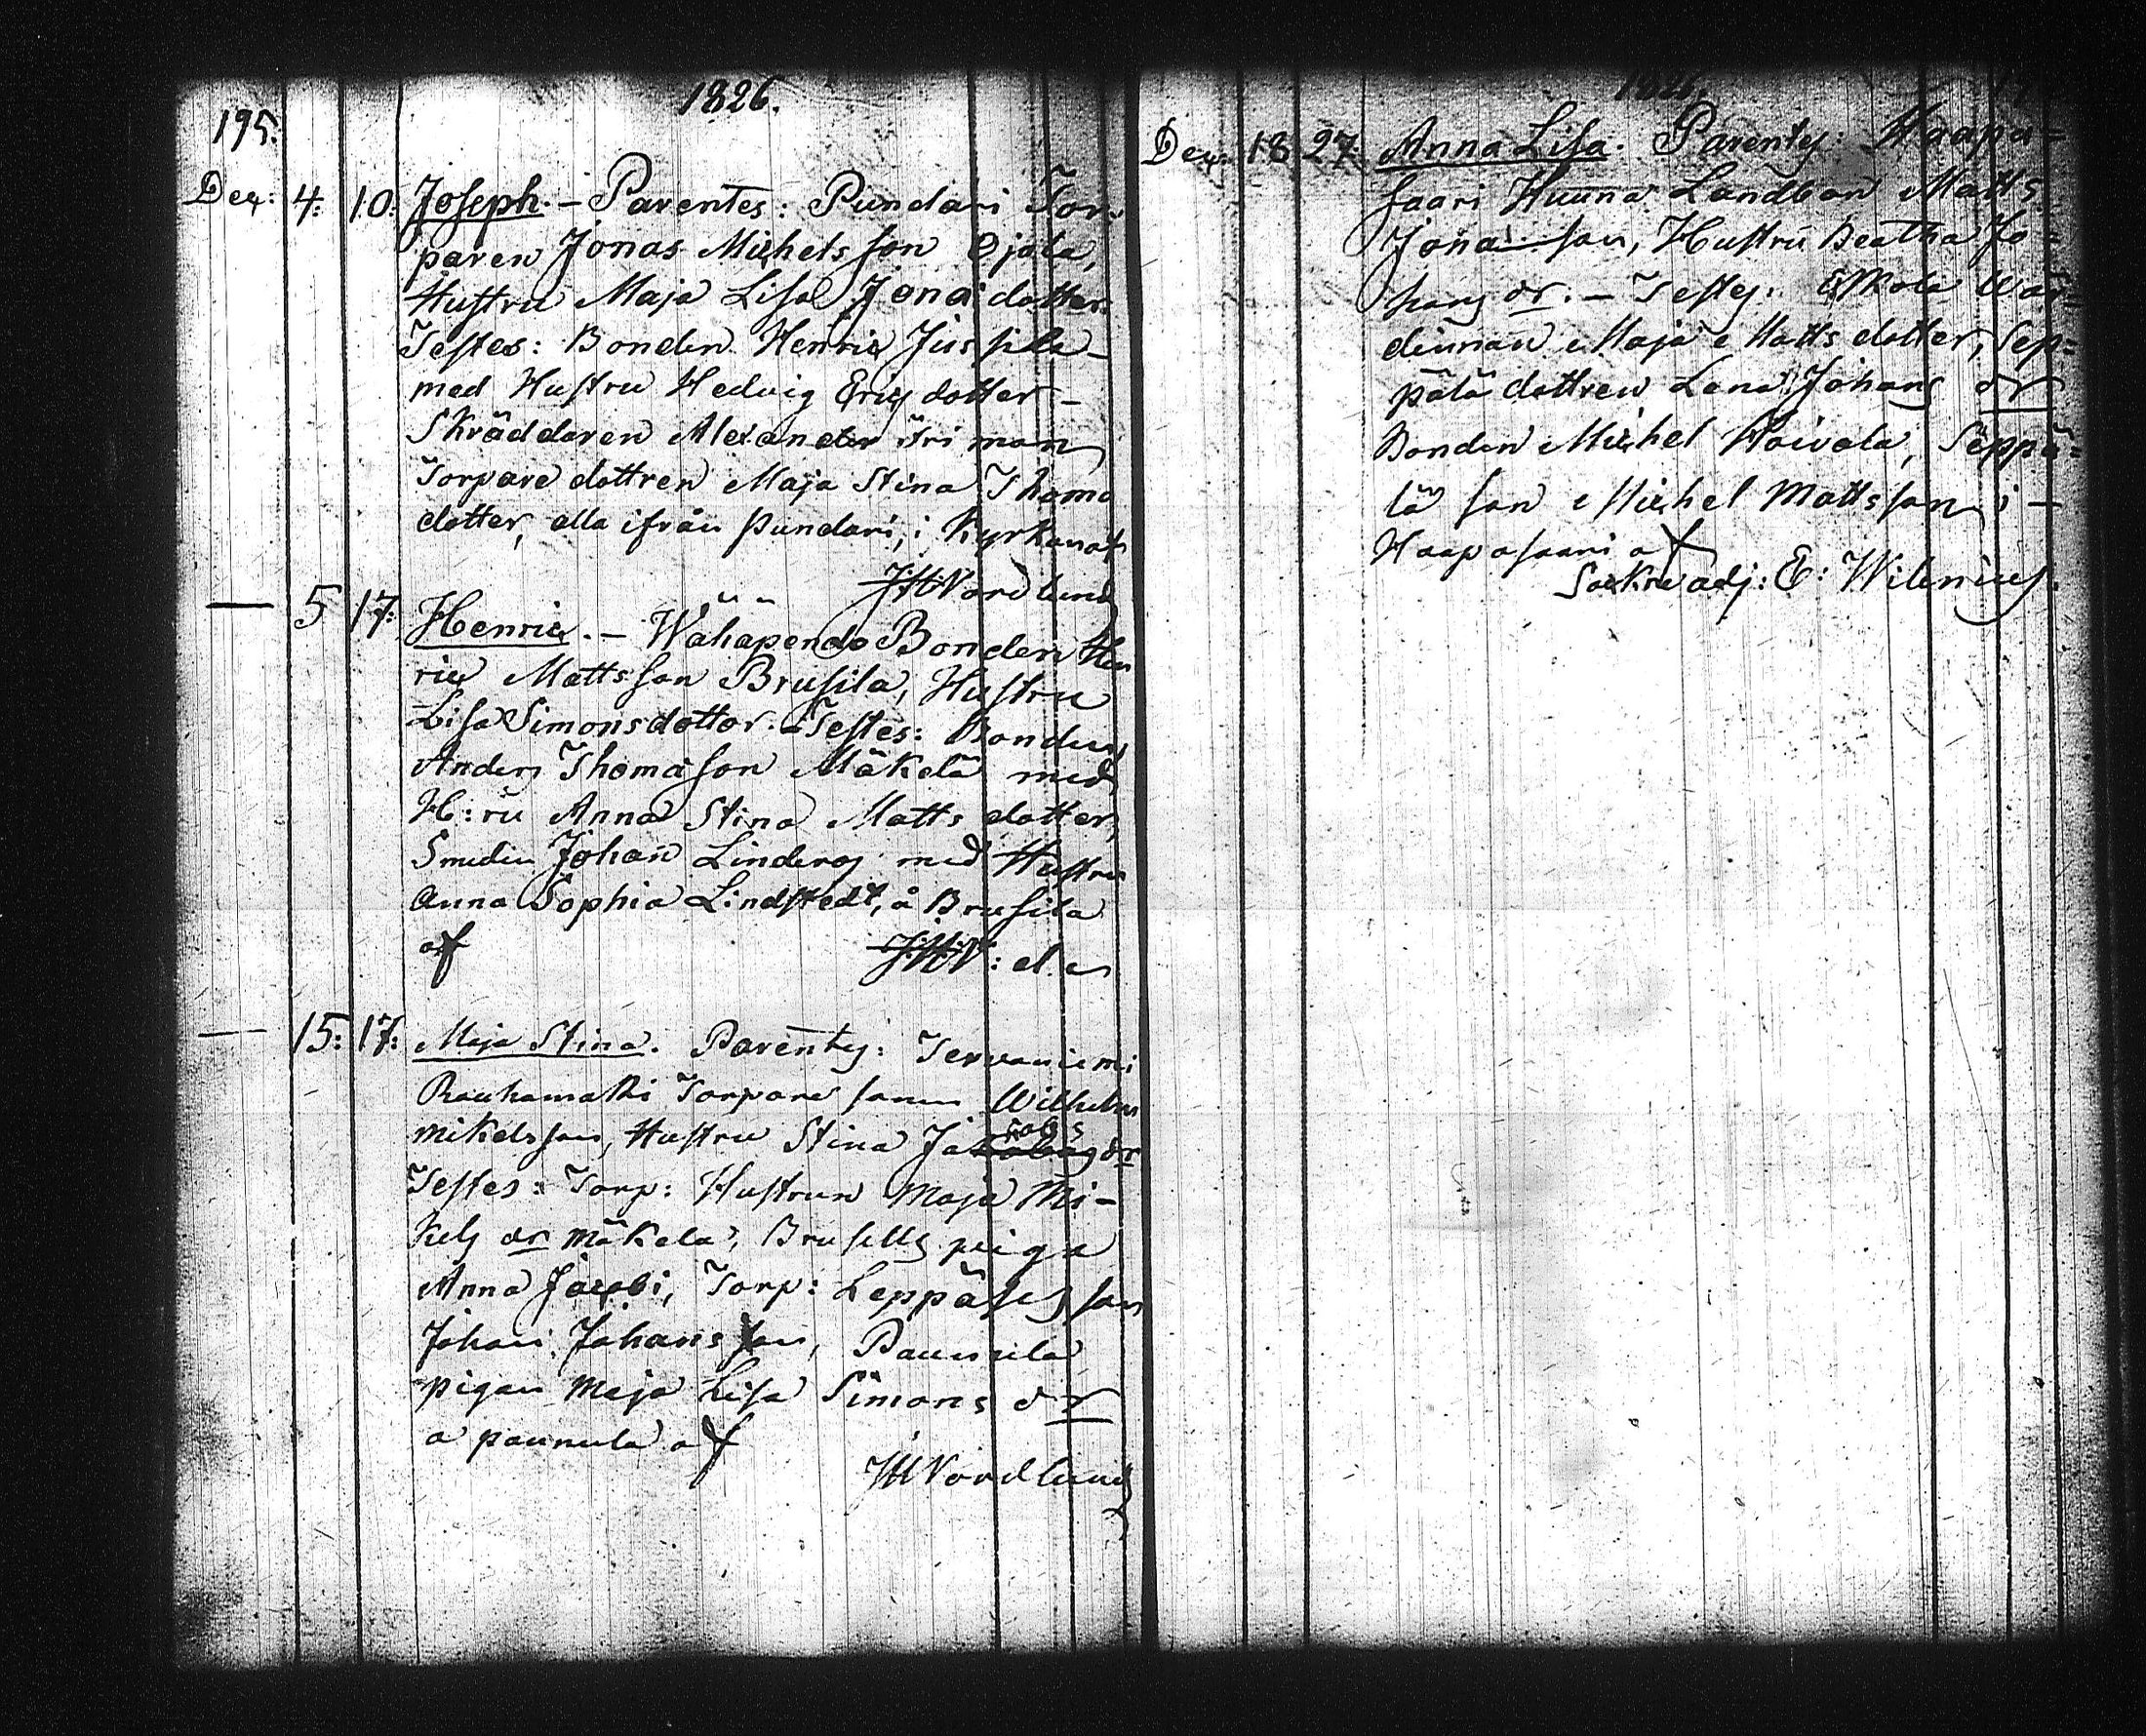 1826.
195.
Dec: 4: 10: Joseph. – Parentes: Pundari Tor-
paren Jonas Michelsson Ojala,
Hustru Maja Lisa Jonædotter.
Testes: Bonden Henric Jussila
med Hustru Hedvig Ericsdotter –
Skräddaren Alexander
Torpare dottren Maja Stina Thomæ
dotter, alla ifrån Pundari, i Kyrkan af
JHNordlund
— 5 17: Henric. – Wähäpendo Bonden Hen
ric Mattsson Brusila, Hustru
Lisa Simonsdotter. – Testes: Bonden
Anders Thomasson Mäkelä med
H:ru Anna Stina Mattsdotter,
Smeden Johan Linderos med Hustru
Anna Sophia Lindstedt, å Brusila
af J:H:N:d.
— 15: 17: Maja Stina. Parentes: Tervaniemi
Rauhamäki Torpare sonen Wilhelm
Mikelsson, Hustru Stina Jakobs dr
Testes: Torp: Hustrun Maja Mi-
kels dr Mäkelä, Brusells piga
Anna Jacobi, Torp: Leppäses son
Johan Johansson, Paunula
pigan Maja Lisa Simons dr
a paunula af
JHNordlund
1826.
Dec. 18 27. Anna Lisa. Parentes: Haapa-
saari Huuna Landbon Matts
Jonasson, Hustru Beatha Jo-
hans dr. – Testes: Eskola Wär-
dinnan Maja Matts dotter, Sep-
pälä dottren Lena Johans dr
Bonden Michel Hoivala, Seppä-
lä son Michel Mattsson i –
Haapasaari af
Sockne adj: E: Wilenius.